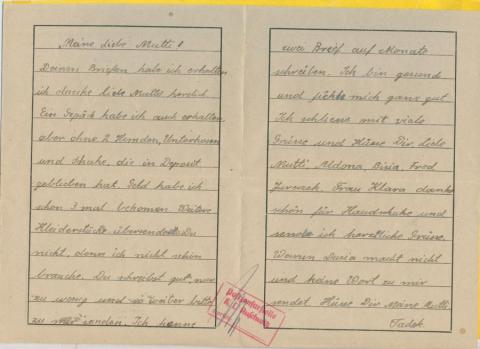 Meine liebe Mutti!
Deinen Briefen habe ich erhalten
ich danke liebe Mutti herzlich
Ein Gepäck habe ich auch erhalten
aber ohne 2 Hemden, Unterhosen
und shake, die in Deposit
geblieben hat. Geld habe ich
schon 3 mal bekomen Weitere
Kleiderstücke übersende Du
nicht, denn ich nicht schon
brauche. Du schreibst gut, nur
zu wenig und weiter bitte
zu senden. Ich kenne
zwei Breif auf Monate
schreiben. Ich bin gesund
und fühle mich ganz gut
Ich schliess mit viele
Grüsse und Küsse Dir, liebe
Mutti Aldona, Bisia, Fred
Frau Klara danke
schön für Handschuhe und
sende ich herzliche Grüsse.
Warum Lusia macht nicht
und keine Wort zu mir
sendet. Küsse Dir Meine Mutti
Tadek.
Postzensurstelle
K. L. Auschwitz